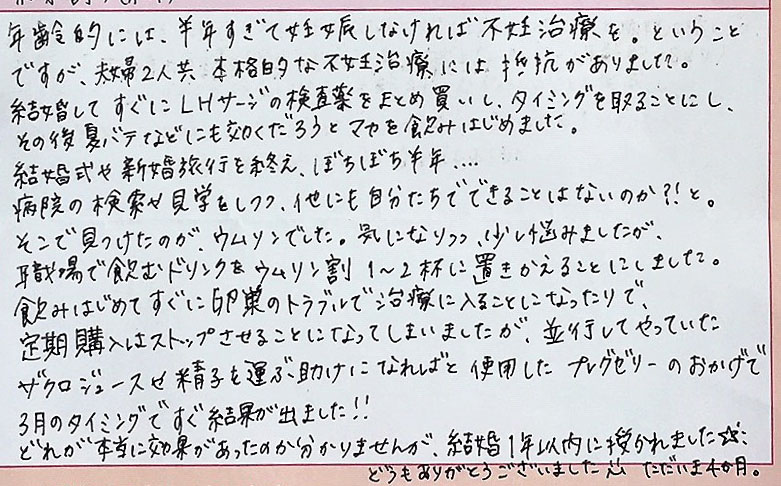 年齢的には、半年すぎて妊娠しなければ不妊治療を。ということ
ですが、夫婦2人共 本格的な不妊治療には抵抗がありました。
結婚してすぐにLHサージの検査薬をまとめ買いし、タイミングを取ることにし、
その後夏バテなどにも効くだろうとマカを飲みはじめました。
結婚式や新婚旅行を終え、ぼちぼち半年‥‥
病院の検索や見学をしつつ、他にも自分たちでできることはないのか?!と。
そこで見つけたのが、ウムリンでした。気になりつつ、少し悩みましたが、
職場で飲むドリンクをウムリン割 1〜2杯に置きかえることにしました。
飲みはじめてすぐに卵巣のトラブルで治療に入ることになったりで、
定期購入はストップさせることになってしまいましたが、並行してやっていた
ザクロジュースや精子を運ぶ助けになればと使用した プレグゼリーのおかげで
3月のタイミングですぐ結果が出ました!!
どれが本当に効果があったのか分かりませんが、結婚1年以内に授かれました☆
どうもありがとうございました ただいま4か月。